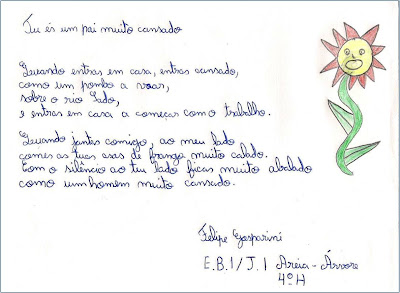 Tu és um pai muito cansado
Quando entras em casa, entras cansado,
como um pombo a voar,
sobre o rio Sado,
e entras em casa a começar como o trabalho.
Quando jantas comigo, ao meu lado
comes as tuas asas de frango muito calado.
Com o silêncio ao teu lado ficas muito abalado
como um homem muito cansado.
Felipe Gasparini
E.B.1/J.I Areia - Árvore
4º H